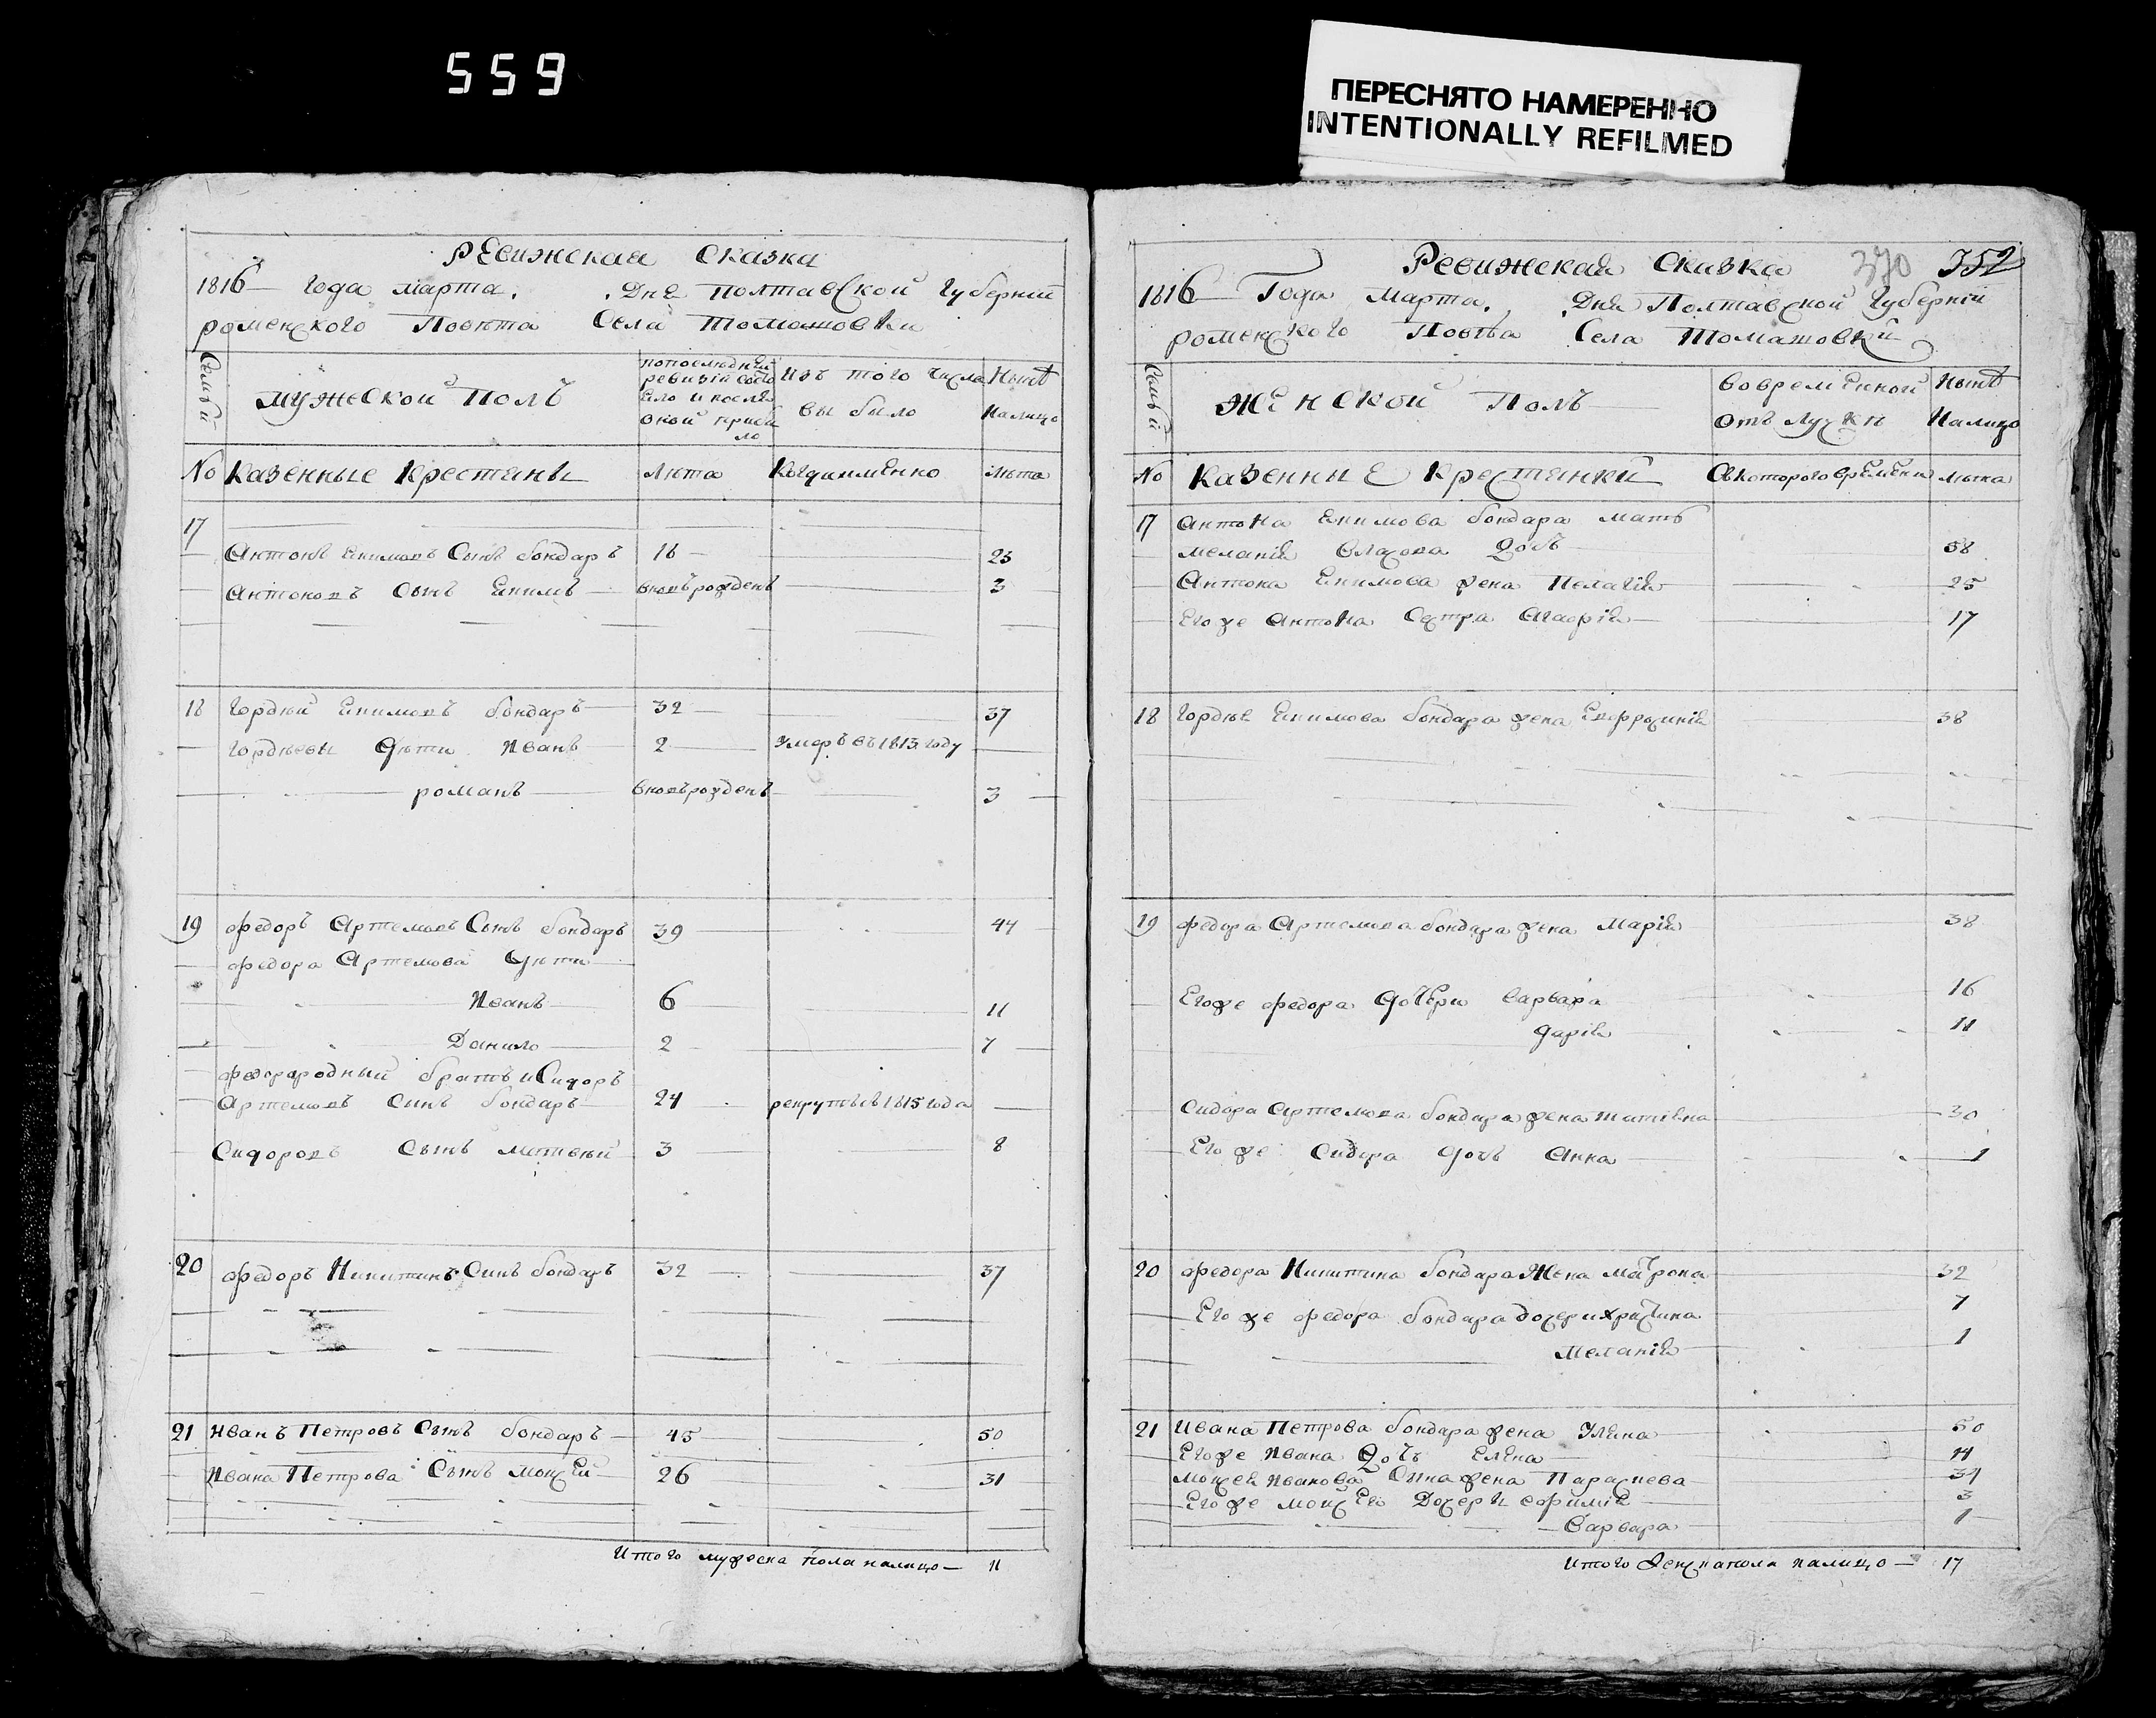 559
ПЕРЕСНЯТО НАМЕРЕННО
INTENTIONALLY REFILMED
Ревижская Сказка
1816 Года марта. Дня Полтавской Губерніи
роменского Повѣта Села Томашовки
Семьи
мужеской Полъ
попоследней ревизіи состо
яло и после
оной прибы
ло
Изъ того числа
вы было
Нынѣ
Налицо
No Казенные Крестяны Лѣта Когдаименно Лѣта
17
Антонъ Екимовъ Сынъ бондаръ 18 23
Антоновъ Сынъ Екимъ вновърожденъ 3
18 Гордѣй Екимовъ бондаръ 32 37
Гордѣевы Дѣти Иванъ 2 Умеръ въ 1813 году
романъ вновърожденъ 3
19 Федоръ Артемовъ Сынъ бондаръ 39 44
Федора Артемова Дѣти
Иванъ 6 11
Данило 2 7
Федорародный братъ и Сидоръ
Артемовъ Синъ бондаръ 24 рекрутъ в 1815 года
Сидоровъ Сынъ Матвѣй 3 8
20 Федоръ Никитинъ Синъ бондаръ 32 37
21 Иванъ Петровъ Сынъ бондаръ 45 50
Ивана Петрова Сынъ Моисей 26 31
Итого мужеска пола налицо 11
Ревижская Сказка 370 352
1816 Года Марта. Дня Полтавской Губерніи
роменского Повѣта Села Томашовки
Семьи
Женской Полъ
вовременной
отъ лучки
Нынѣ
Налицо
No Казенные Крестянки Скоторого времени лѣта
17 Антона Екимова бондара мать
меланія Власова Дочь 58
Антона Екимова жена Пелагія 25
Егоже Антона Сестра Агафія 17
18 Гордѣя Екимова бондара жена Евфросинія 38
19 Федора Артемова бондара жена Марія 38
Егоже Федора Дочери Варвара 16
Дарія 11
Сидора Артемова бондара жена Татіяна 30
Егоже Сидора Дочь Анна 1
20 Федора Никитина бондара Жена матрона 32
Егоже Федора бондара дочери Христина 7
Меланія 1
21 Ивана Петрова бондара жена Уляна 50
Егоже Ивана Дочь Елена 11
Моисея Иванова Сына жена Параскева 31
Егоже Моисея Дочери Еофимія 3
Варвара 1
Итого женска пола налицо 17